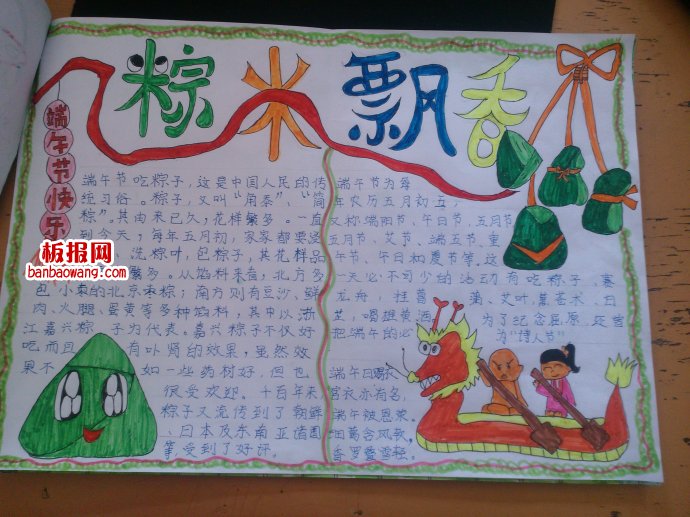 粽米飘香
端午节快乐
端午节吃粽子，这是中国人民的传
统习俗。粽子，又叫"角黍"、"筒
粽"。其由来已久，花样繁多。一直
到今天，每年五月初，家家都要浸
洗粽叶，包粽子，其花样品
繁多。从馅料来看，北方多
包小枣的北京枣粽；南方则有豆沙、鲜
肉、火腿、蛋黄等多种馅料，其中以浙
江嘉兴粽子为代表。嘉兴粽子不仅好
吃而且有卟肾的效果，虽然效
果不如一些药材好，但也
很受欢迎。千百年来，
粽子又流传到了朝鲜
、日本及东南亚诸国
等，受到了好评。
端午节为每
年农历五月初五，
又称端阳节、午日节、五月节
五月节、艾节、端五节、重
午节、午日和夏节等，这
一天必不可少的活动有吃粽子、赛
龙舟，挂菖蒲、艾叶，薰苍术、白
芷，喝雄黄酒。为了纪念屈原，还曾
把端午的必为"诗人节"
端午日赐衣
宫衣亦有名，
端午被恩荣。
细葛含风软，
香罗叠雪轻。
板报网
banbaowang.com